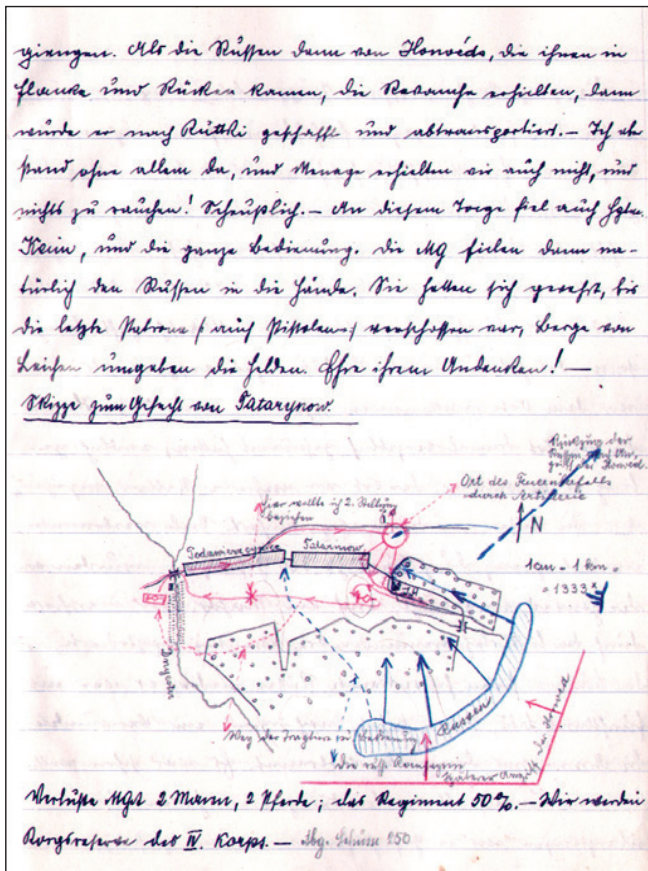 giengen. Als die Russen dann von Honvéds, die ihnen in
Flanke und Rücken kamen, die Revanche erhielten, dann
wurde er nach Ruttki geschafft und abtransportiert. – Ich
stand ohne allem da, und Menage erhielten wir auch nicht, und
nichts zu rauchen! Scheußlich. – An diesem Tage fiel auch Hptm.
Keim, und die ganze Bedienung. Die MG fielen dann na-
türlich den Russen in die Hände. Sie hatten sich gewehrt, bis
die letzte Patrone (: auch Pistolen :) verschossen war, Berge von
Leichen umgeben die Helden. Ehre ihrem Andenken! –
Skizze zum Gefecht von Tatarynow.
Rückzug der
Russen nach An-
griff der Honvéd.
Ort des Feuerüberfalls
durch Artillerie
hier wollte ich 2. Stellung
beziehen
N
Tatarynow
1 cm = 1 km =
= 1333 x
Russen
Weg der Tragtiere bei Bedienung
Die russ. Kompagnie
Späterer Angriff der Honvéd
Verluste MGA 2 Mann, 2 Pferde; das Regiment 50 %. – Wir werden
Korpsreserve des IV. Korps. – Abg. Schüsse 250